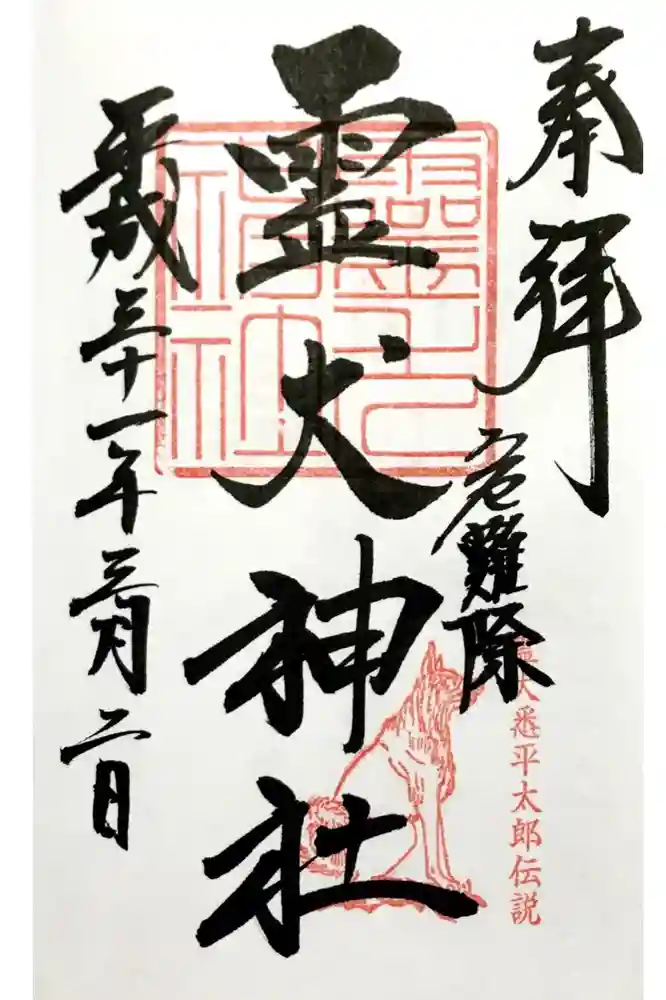 奉拝
危難際
霊犬悉平太郎伝説
霊犬神社
平成三十一年三月二日